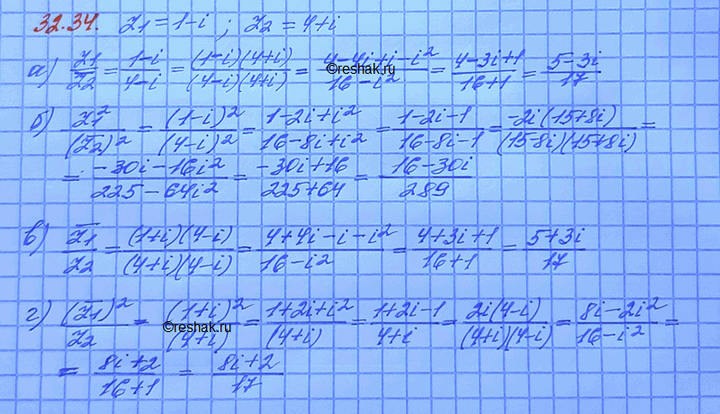 32.34. z₁ = 1-i ; z₂ = 4+i
а) z₁/z̅₂ = (1-i)/(4-i) = (1-i)(4+i)/(4-i)(4+i) = (4-4i+i-i²)/(16-i²) = (4-3i+1)/(16+1) = (5-3i)/17
©reshak.ru
б) z₁²/(z̅₂)² = (1-i)²/(4-i)² = (1-2i+i²)/(16-8i+i²) = (1-2i-1)/(16-8i-1) = -2i(15+8i)/(15-8i)(15+8i) =
= (-30i-16i²)/(225-64i²) = (-30i+16)/(225+64) = (16-30i)/289
в) z̅₁/z₂ = (1+i)(4-i)/(4+i)(4-i) = (4+4i-i-i²)/(16-i²) = (4+3i+1)/(16+1) = (5+3i)/17
г) (z̅₁)²/z₂ = (1+i)²/(4+i) = (1+2i+i²)/(4+i) = (1+2i-1)/(4+i) = 2i(4-i)/(4+i)(4-i) = (8i-2i²)/(16-i²) =
©reshak.ru
= (8i+2)/(16+1) = (8i+2)/17